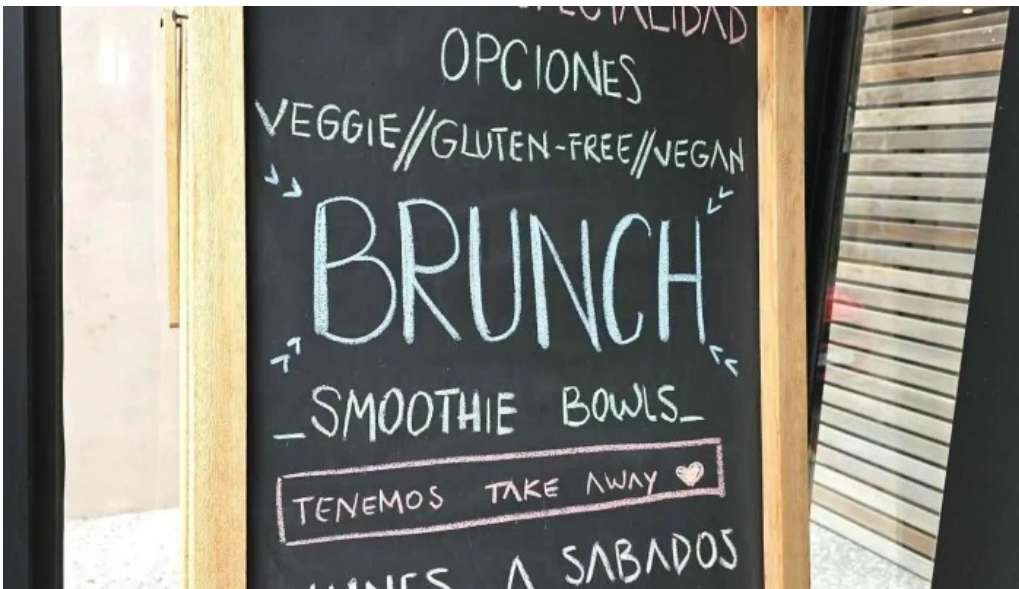 OPCIONES
VEGGIE//GLUTEN-FREE//VEGAN
BRUNCH
_SMOOTHIE BOWLS_
TENEMOS TAKE AWAY
A SABADOS